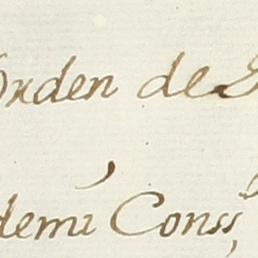 Orden de S
demi Conss